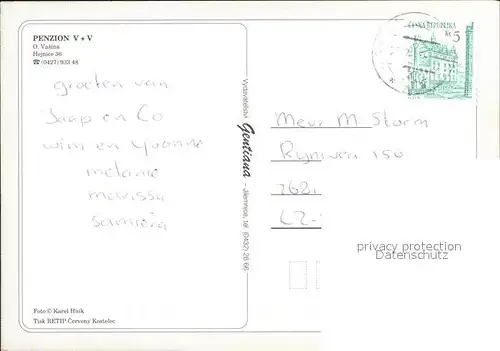 PENZION V + V
O. Vašina
Hejnice 36
☎ (0427) 933 48
groeten van
Jaap en Co
wim en Yvonne
melanie
marissa
samiera
Foto © Karel Hník
Tisk RETIP Červený Kostelec
Vydavatelství Gentiana - Jilemnice, tel. (0432) 26 66
ČESKÁ REPUBLIKA
Kč 5
Meur M Storm
150
privacy protection
Datenschutz